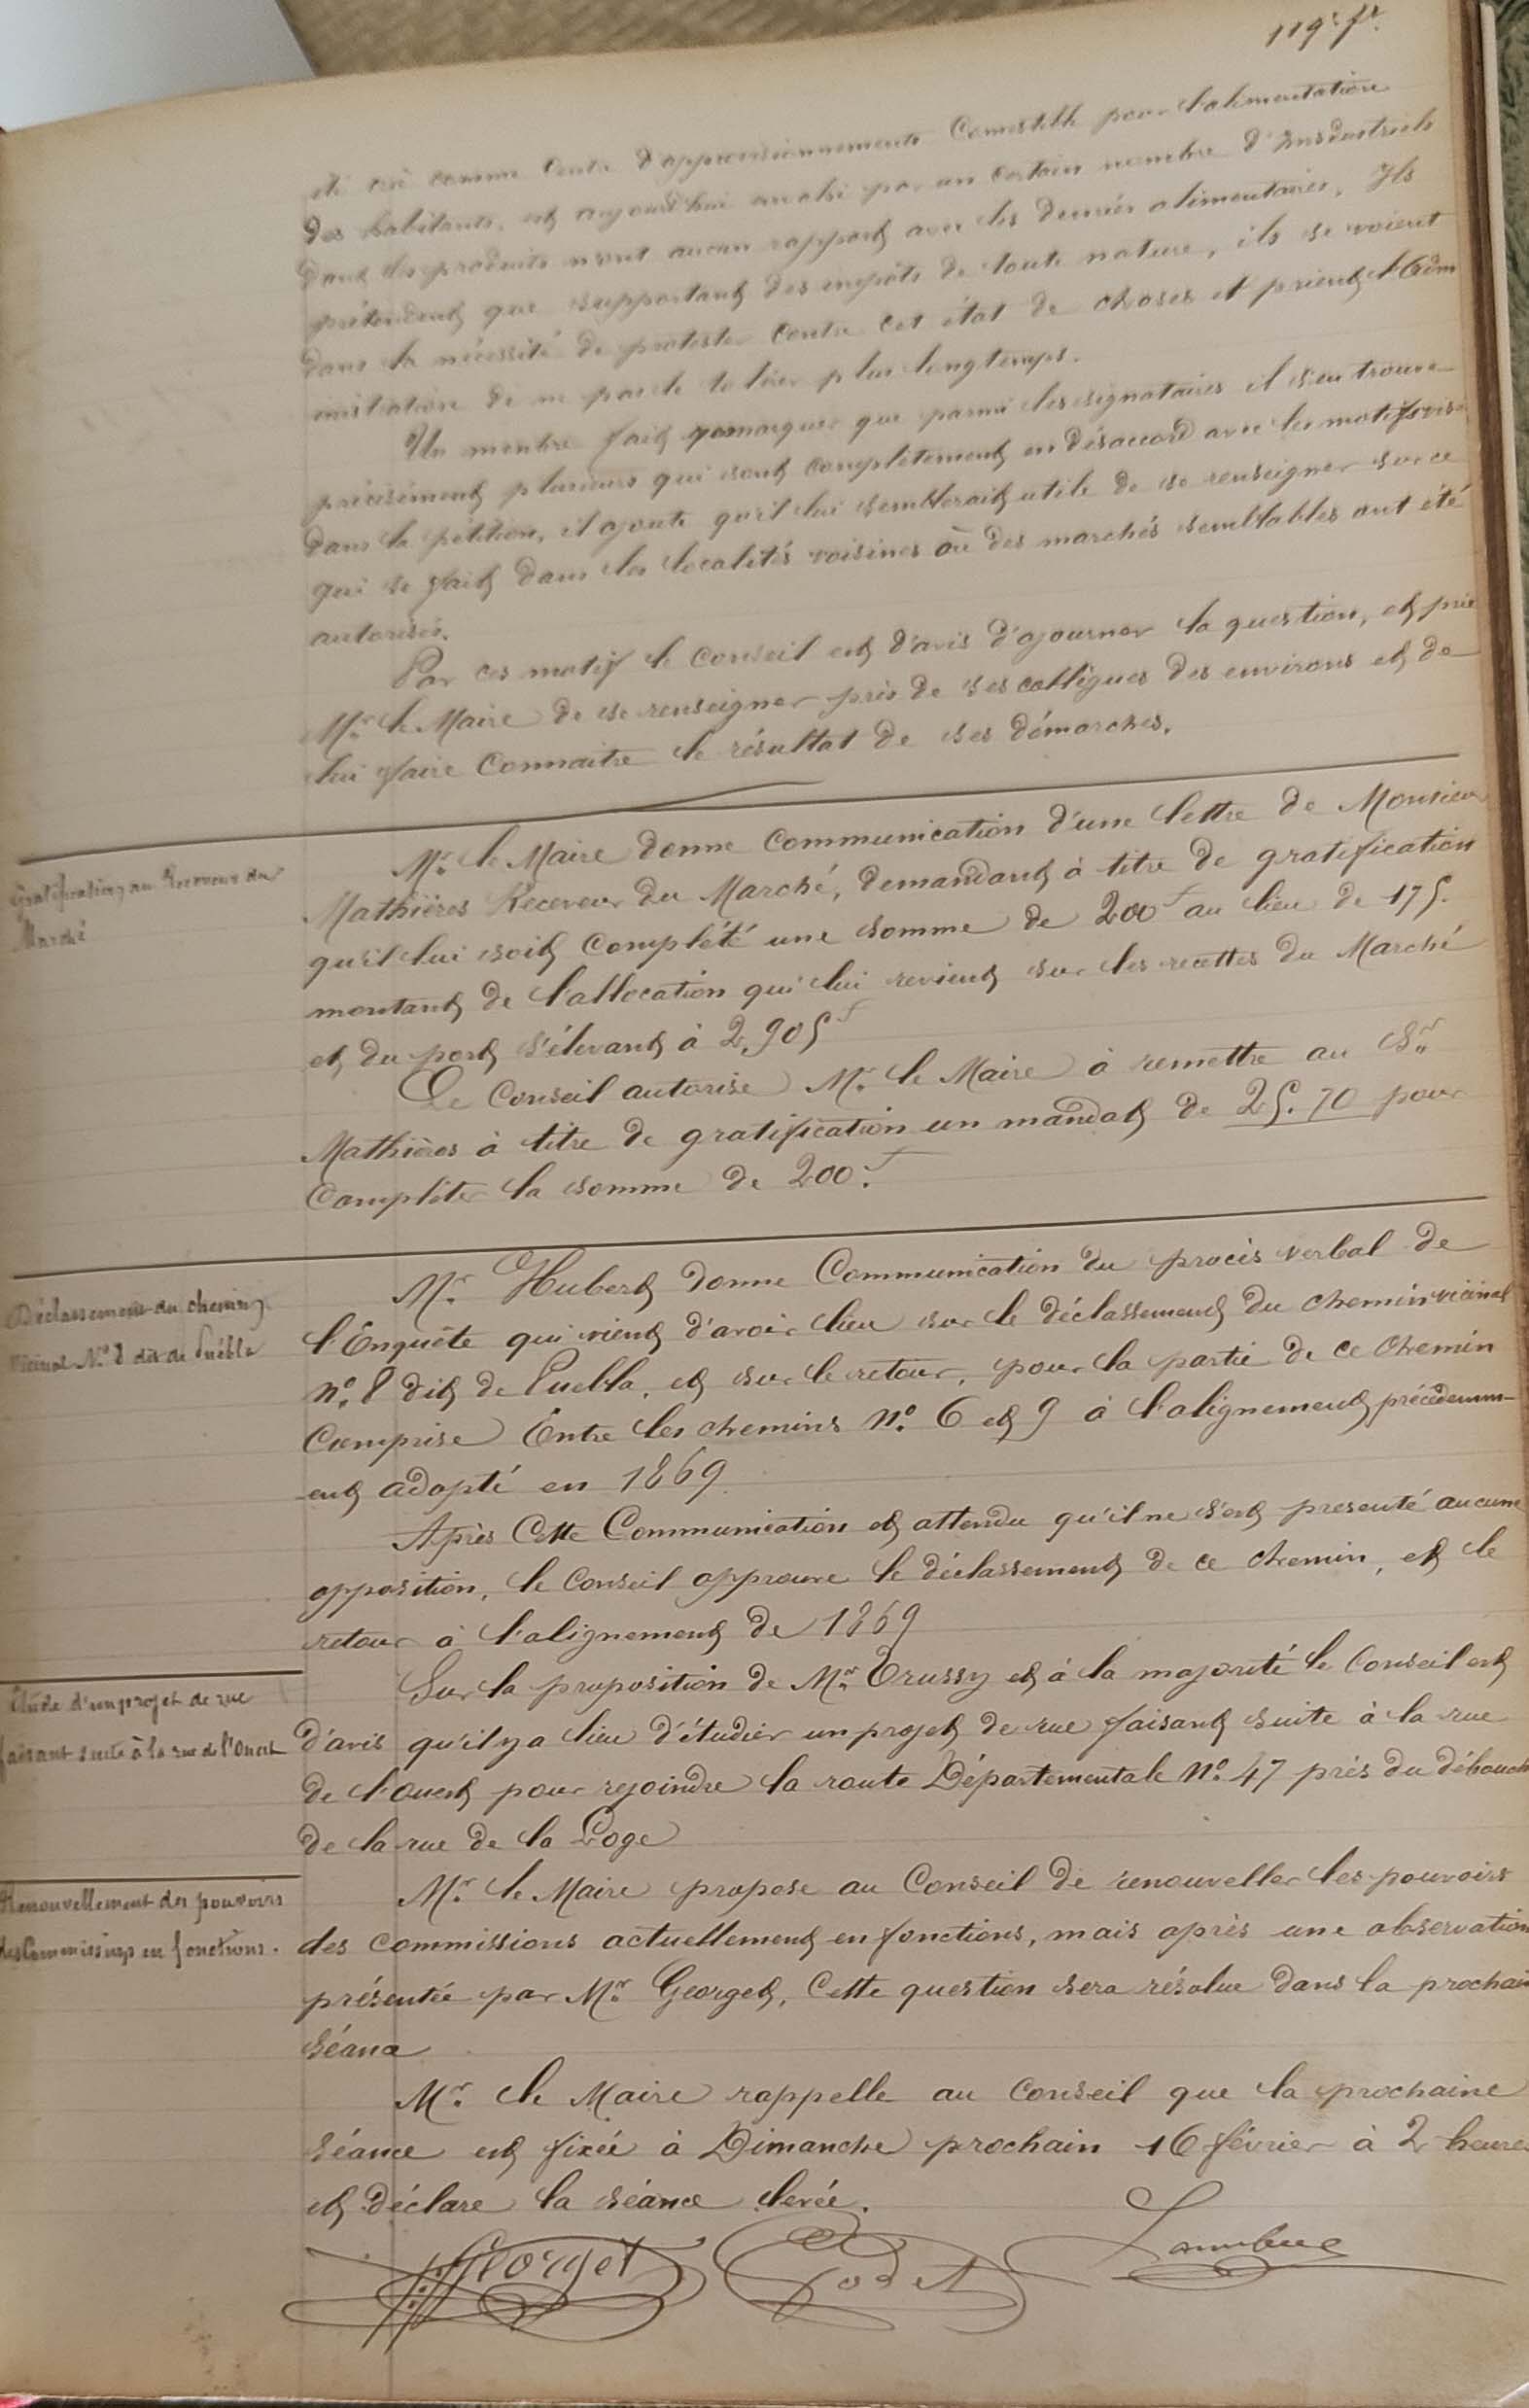 119e ft.
été créé comme Centre d'approvisionnements Comestible pour l'alimentation
des habitants, est aujourd'hui envahi par un certain nombre d'Industriels
dont les produits n'ont aucun rapport avec les denrées alimentaires. Ils
prétendent que supportant des impôts de toute nature, ils se voient
dans la nécessité de protester contre cet état de choses et prient l'Adm
inistration de ne pas le tolérer plus longtemps.
Un membre fait remarquer que parmi les signataires il s'en trouve
précisément plusieurs qui sont complètement en désaccord avec les motifs
dans la pétition, il ajoute qu'il lui semblerait utile de se renseigner sur ce
qui se fait dans les localités voisines où des marchés semblables ont été
autorisés.
Par ces motif le Conseil est d'avis d'ajourner la question, et prie
Mr. le Maire de se renseigner près de ses collègues des environs et de
lui faire Connaitre le résultat de ses démarches.
Gratification au Receveur du
Marché
Mr. le Maire donne Communication d'une lettre de Monsieur
Mathières Receveur du Marché, demandant à titre de gratification
qu'il lui soit Complété une somme de 200f au lieu de 175.
montant de l'allocation qui lui revient sur les recettes du Marché
et du port s'élevant à 2,905f
Le Conseil autorise Mr. le Maire à remettre au Sr.
Mathières à titre de gratification un mandat de 25.70 pour
Compléter la somme de 200.f
Déclassement du chemin
vicinal No. 8 dit de Puébla
Mr. Hubert donne Communication du procès verbal de
l'Enquête qui vient d'avoir lieu sur le déclassement du chemin vicinal
no. 8 dit de Puebla, et sur le retour, pour la partie de ce Chemin
Comprise Entre les chemins No. 6 et 9 à l'alignement précédemm-
ent adopté en 1869.
Après Cette Communication et attendu qu'il ne s'est presenté aucune
opposition, le Conseil approuve le déclassement de ce chemin, et le
retour à l'alignement de 1869
Etude d'un projet de rue
faisant suite à la rue de l'Ouest
Sur la proposition de Mr. Trussy et à la majorité le Conseil est
d'avis qu'il y a lieu d'étudier un projet de rue faisant suite à la rue
de l'ouest pour rejoindre la route Départementale No. 47 près du débouch
de la rue de la Loge
Renouvellement des pouvoirs
des Commissions en fonctions.
Mr. le Maire propose au Conseil de renouveller les pouvoirs
des commissions actuellement en fonctions, mais après une observation
présentée par Mr. Georget, Cette question sera résolue dans la prochain
séance
Mr. le Maire rappelle au Conseil que la prochaine
séance est fixée à Dimanche prochain 16 février à 2 heures
et Déclare la séance levée.
Georget Godet